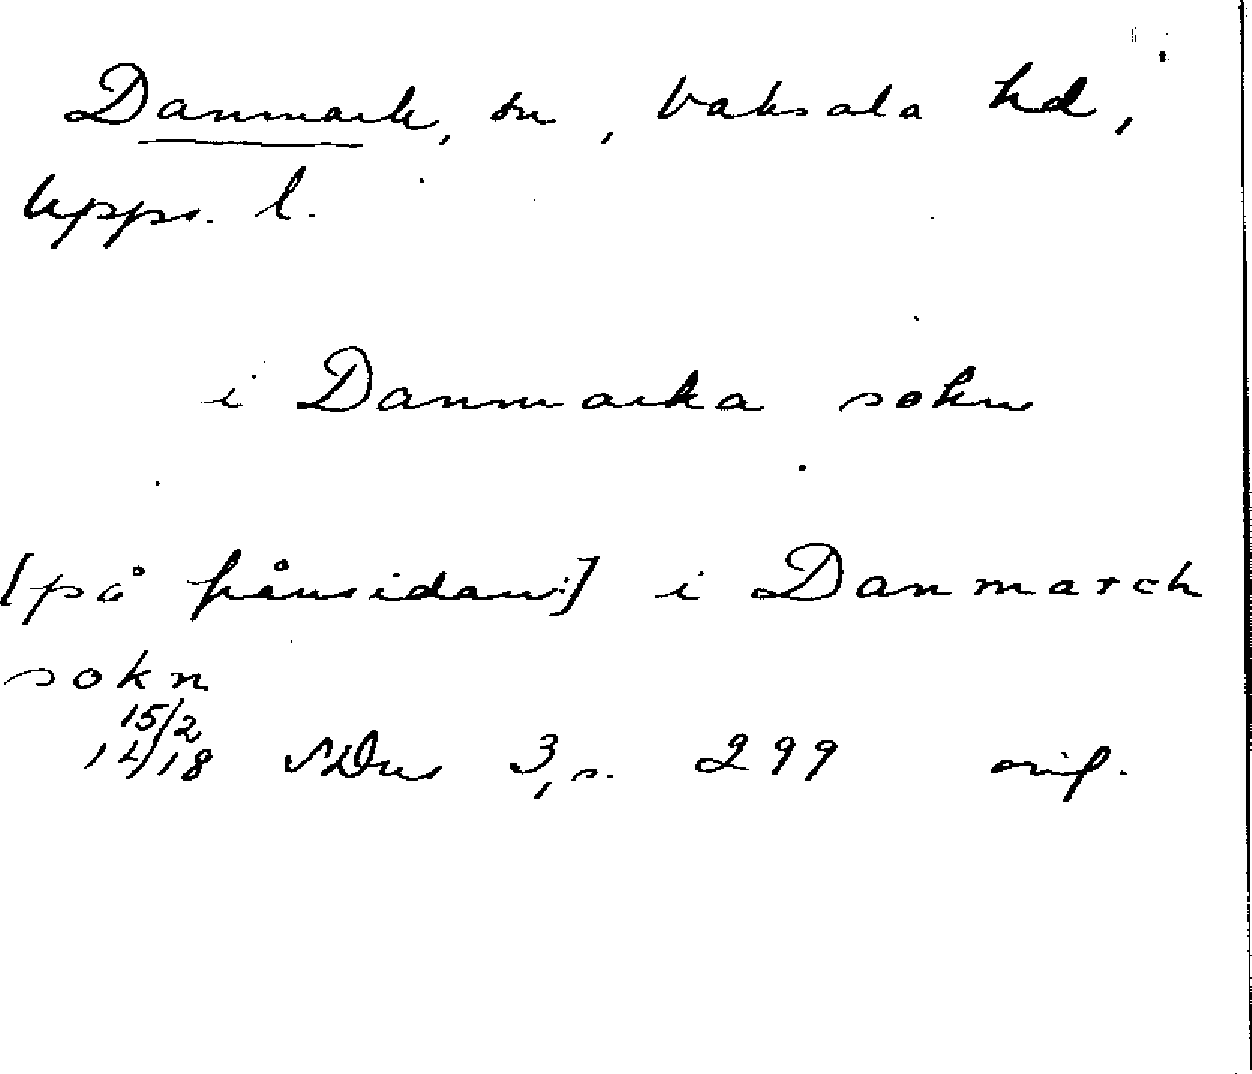 Danmark, sn, Vaksala hd,
Upps. l.
i Danmarka sokn
[på frånsidan:] i Danmarch
sokn
15/2
1418 SDns 3, s. 299 orig.